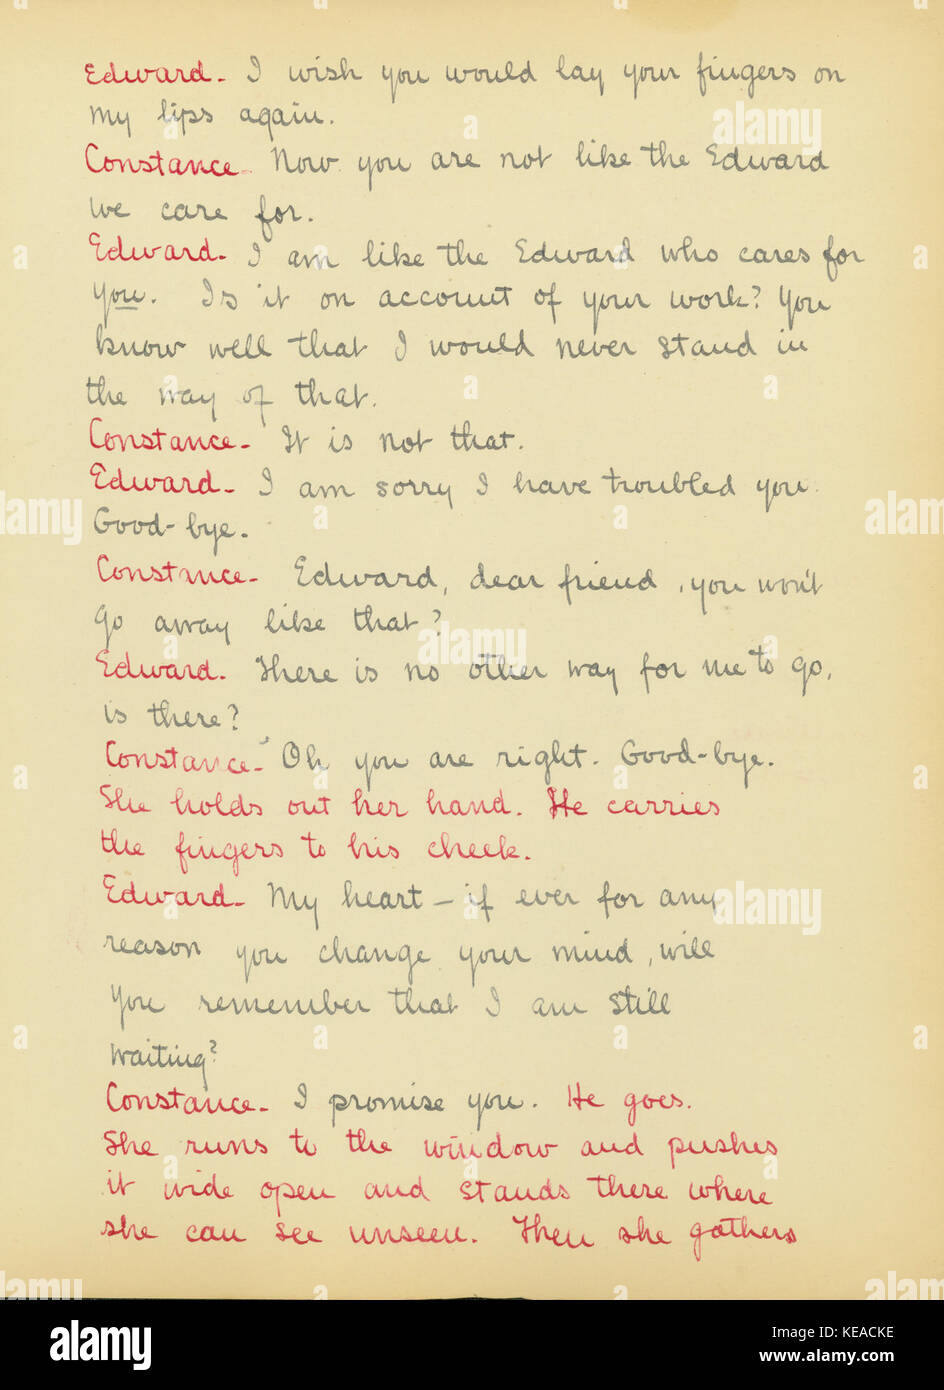 Edward- I wish you would lay your fingers on
my lips again.
Constance- Now you are not like the Edward
we care for.
Edward- I am like the Edward who cares for
you. Is it on account of your work? You
know well that I would never stand in
the way of that.
Constance- It is not that.
Edward- I am sorry I have troubled you.
Good-bye.
Constance- Edward, dear friend, you won't
go away like that?
Edward- There is no other way for me to go,
is there?
Constance- Oh you are right. Good-bye.
She holds out her hand. He carries
the fingers to his cheek.
Edward- My heart - if ever for any
reason you change your mind, will
you remember that I am still
waiting?
Constance- I promise you. He goes.
She runs to the window and pushes
it wide open and stands there where
she can see unseen. Then she gathers
alamy
Image ID: KEACKE
www.alamy.com